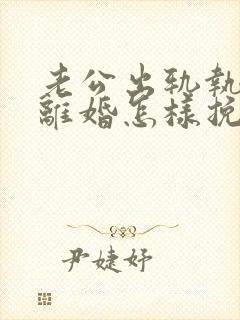 老公出轨執
離婚怎樣挽
尹婕妤